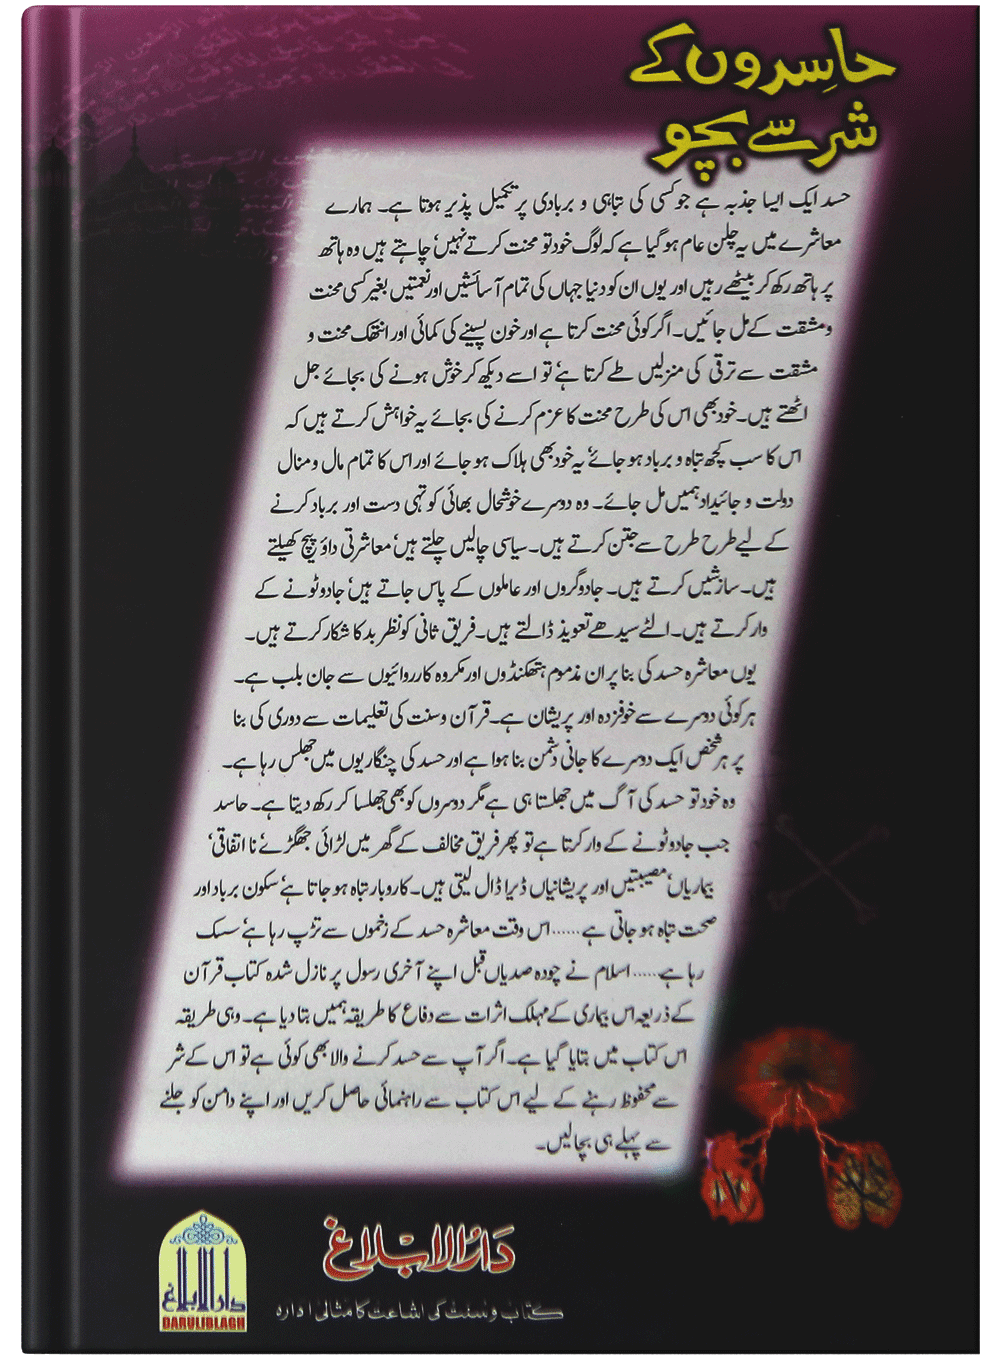 حاسدوں کے
شر سے بچو
حسد ایک ایسا جذبہ ہے جو کسی کی تباہی و بربادی پر تکمیل پذیر ہوتا ہے۔ ہمارے
معاشرے میں یہ چلن عام ہو گیا ہے کہ لوگ خود تو محنت کرتے نہیں‘ چاہتے ہیں وہ ہاتھ
پر ہاتھ رکھ کر بیٹھے رہیں اور یوں ان کو دنیا جہاں کی تمام آسائشیں اور نعمتیں بغیر کسی محنت
و مشقت کے مل جائیں۔ اگر کوئی محنت کرتا ہے اور خون پسینے کی کمائی اور انتھک محنت و
مشقت سے ترقی کی منزلیں طے کرتا ہے‘ تو اسے دیکھ کر خوش ہونے کی بجائے جل
اٹھتے ہیں۔ خود بھی اس کی طرح محنت کا عزم کرنے کی بجائے یہ خواہش کرتے ہیں کہ
اس کا سب کچھ تباہ و برباد ہو جائے‘ یہ خود بھی ہلاک ہو جائے اور اس کا تمام مال و منال
دولت و جائیداد ہمیں مل جائے۔ وہ دوسرے خوشحال بھائی کو تہی دست اور برباد کرنے
کے لیے طرح طرح سے جتن کرتے ہیں۔ سیاسی چالیں چلتے ہیں‘ معاشرتی داؤ پیچ کھیلتے
ہیں۔ سازشیں کرتے ہیں۔ جادوگروں اور عاملوں کے پاس جاتے ہیں‘ جادو ٹونے کے
وار کرتے ہیں۔ الٹے سیدھے تعویذ ڈالتے ہیں۔ فریق ثانی کو نظر بد کا شکار کرتے ہیں۔
یوں معاشرہ حسد کی بنا پر ان مذموم ہتھکنڈوں اور مکروہ کارروائیوں سے جان بلب ہے۔
ہر کوئی دوسرے سے خوفزدہ اور پریشان ہے۔ قرآن و سنت کی تعلیمات سے دوری کی بنا
پر ہر شخص ایک دوسرے کا جانی دشمن بنا ہوا ہے اور حسد کی چنگاریوں میں جھلس رہا ہے۔
وہ خود تو حسد کی آگ میں جھلستا ہی ہے مگر دوسروں کو بھی جھلسا کر رکھ دیتا ہے۔ حاسد
جب جادو ٹونے کے وار کرتا ہے تو پھر فریق مخالف کے گھر میں لڑائی جھگڑے‘ نا اتفاقی‘
بیماریاں‘ مصیبتیں اور پریشانیاں ڈیرا ڈال لیتی ہیں۔ کاروبار تباہ ہو جاتا ہے‘ سکون برباد اور
صحت تباہ ہو جاتی ہے...... اس وقت معاشرہ حسد کے زخموں سے تڑپ رہا ہے‘ سسک
رہا ہے..... اسلام نے چودہ صدیاں قبل اپنے آخری رسول پر نازل شدہ کتاب قرآن
کے ذریعہ اس بیماری کے مہلک اثرات سے دفاع کا طریقہ ہمیں بتا دیا ہے۔ وہی طریقہ
اس کتاب میں بتایا گیا ہے۔ اگر آپ سے حسد کرنے والا بھی کوئی ہے تو اس کے شر
سے محفوظ رہنے کے لیے اس کتاب سے راہنمائی حاصل کریں اور اپنے دامن کو جلنے
سے پہلے ہی بچا لیں۔
دارالابلاغ
کتاب و سنت کی اشاعت کا مثالی ادارہ
دارالابلاغ
DARULIBLAGH